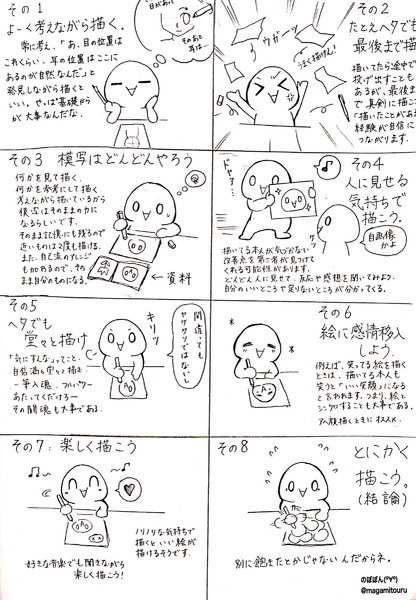 その1
よーく考えながら描く。
常に考え、「あ、目の位置は
これくらい、耳の位置はここに
あるのが自然なんだ」と
発見しながら描くと
いい。やっぱ基礎が
大事なんだな。
目があって
その2
たとえヘタでも
最後まで描く
ウガーッ
うまく描けん!
描いてたら途中で
投げ出すことも
あるが、最後まで
真剣に描こう
「描いたことがある」
経験が自信に
つながります。
その3 模写はどんどんやろう
何かを見て描く。
何かを参考にして描く。
考えながら描いているから
模写はそのままの力に
なるらしいです。
そのまま記憶にも残るので
近いものは2度も描ける。
また、自己流のアレンジ
も加わるので、その
まま自分のものになる。
←資料
その4
人に見せる
気持ちで
描こう。
ドヤァ…
自画像
かよ
描いてる本人が気づかない
改善点を第三者が見つけて
くれる可能性があります。
どんどん人に見せて、反応や感想を聞いてみよう。
自分のいいところや足りないところが分かってくる。
その5
ヘタでも
堂々と描け
キリッ
間違っても
ヤケクソでは
ないし
「気にすんな」ってこと。
自信満々堂々と描き
一筆入魂、
あたってくだけろー
その闘魂も大事である。
その6
絵に感情移入
しよう。
例えば、笑ってる絵を描く
ときは、描いてる本人も
笑うと「いい笑顔」になる
と言われます。つまり、絵と
シンクロすることも大事である。
アヘ顔描くときにオススメ
その7:楽しく描こう
ノリノリな気持ちで
描くといい絵が
描けるそうです。
好きな音楽でも聞きながら
楽しく描こう!
その8
とにかく
描こう。
(結論)
別に飽きたとかじゃないんだからネ。
のぼぼん(°∀°)
@magamitouru